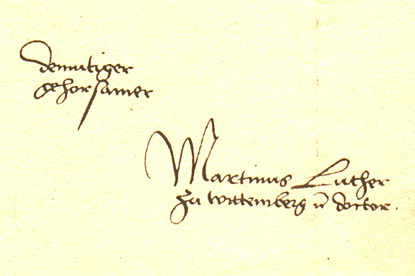 demutiger
gehorsamer
Martinus Luther
zu wittemberg ū doctor.